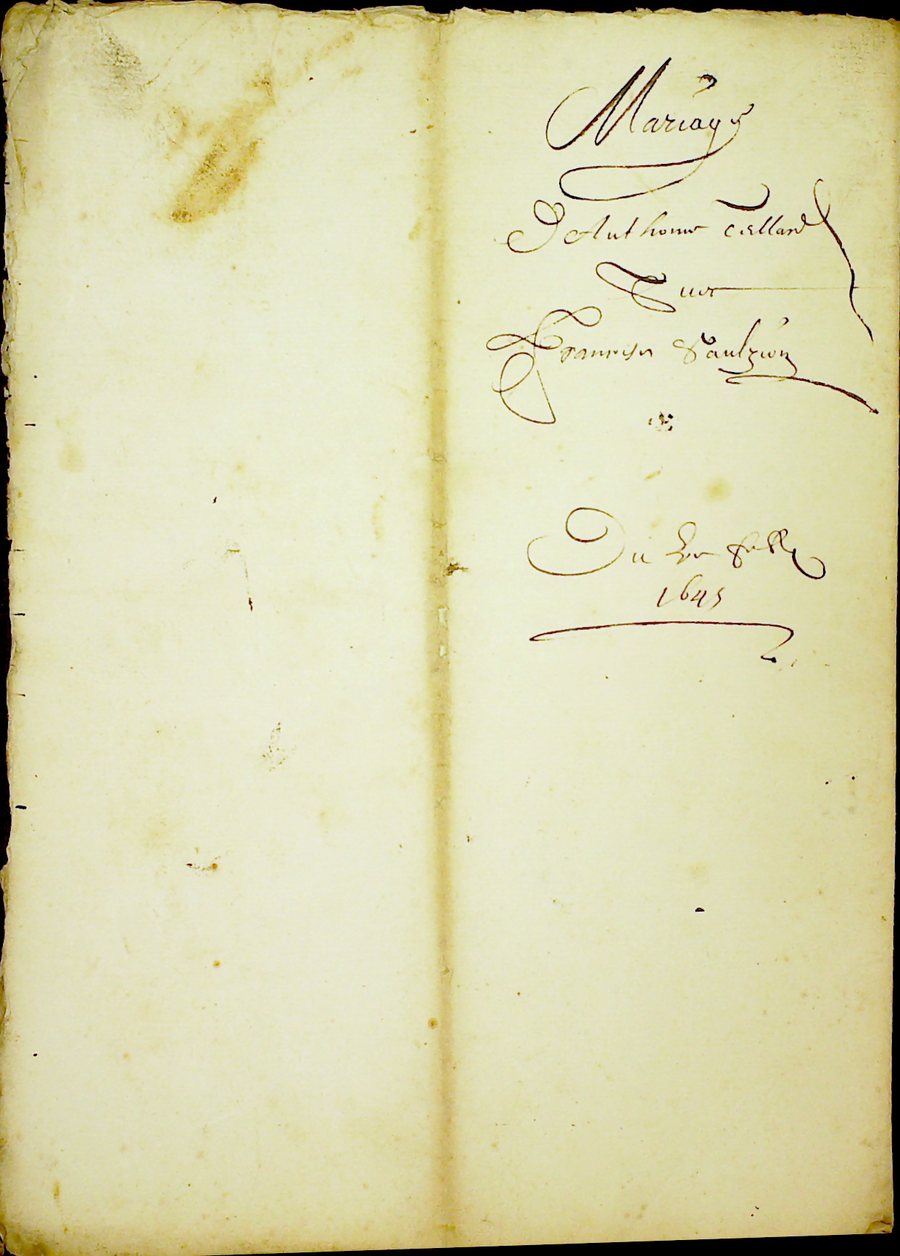 Mariage
D Anthoine Cellard
Avec
Françoise Saulzion
Du
1645